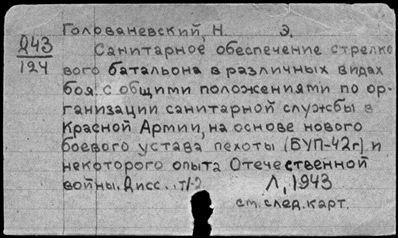 Голованевский, Н Э.
Д43
124
Санитарное обеспечение стрелко
вого батальона в различных видах
боя с общими положениями по ор-
ганизации санитарной службы в
Красной Армии, на основе нового
боевого устава пехоты (БУП-42г) и
некоторого опыта Отечественной
войны. Дисс. т1-2 Л, 1943
см. след. карт.